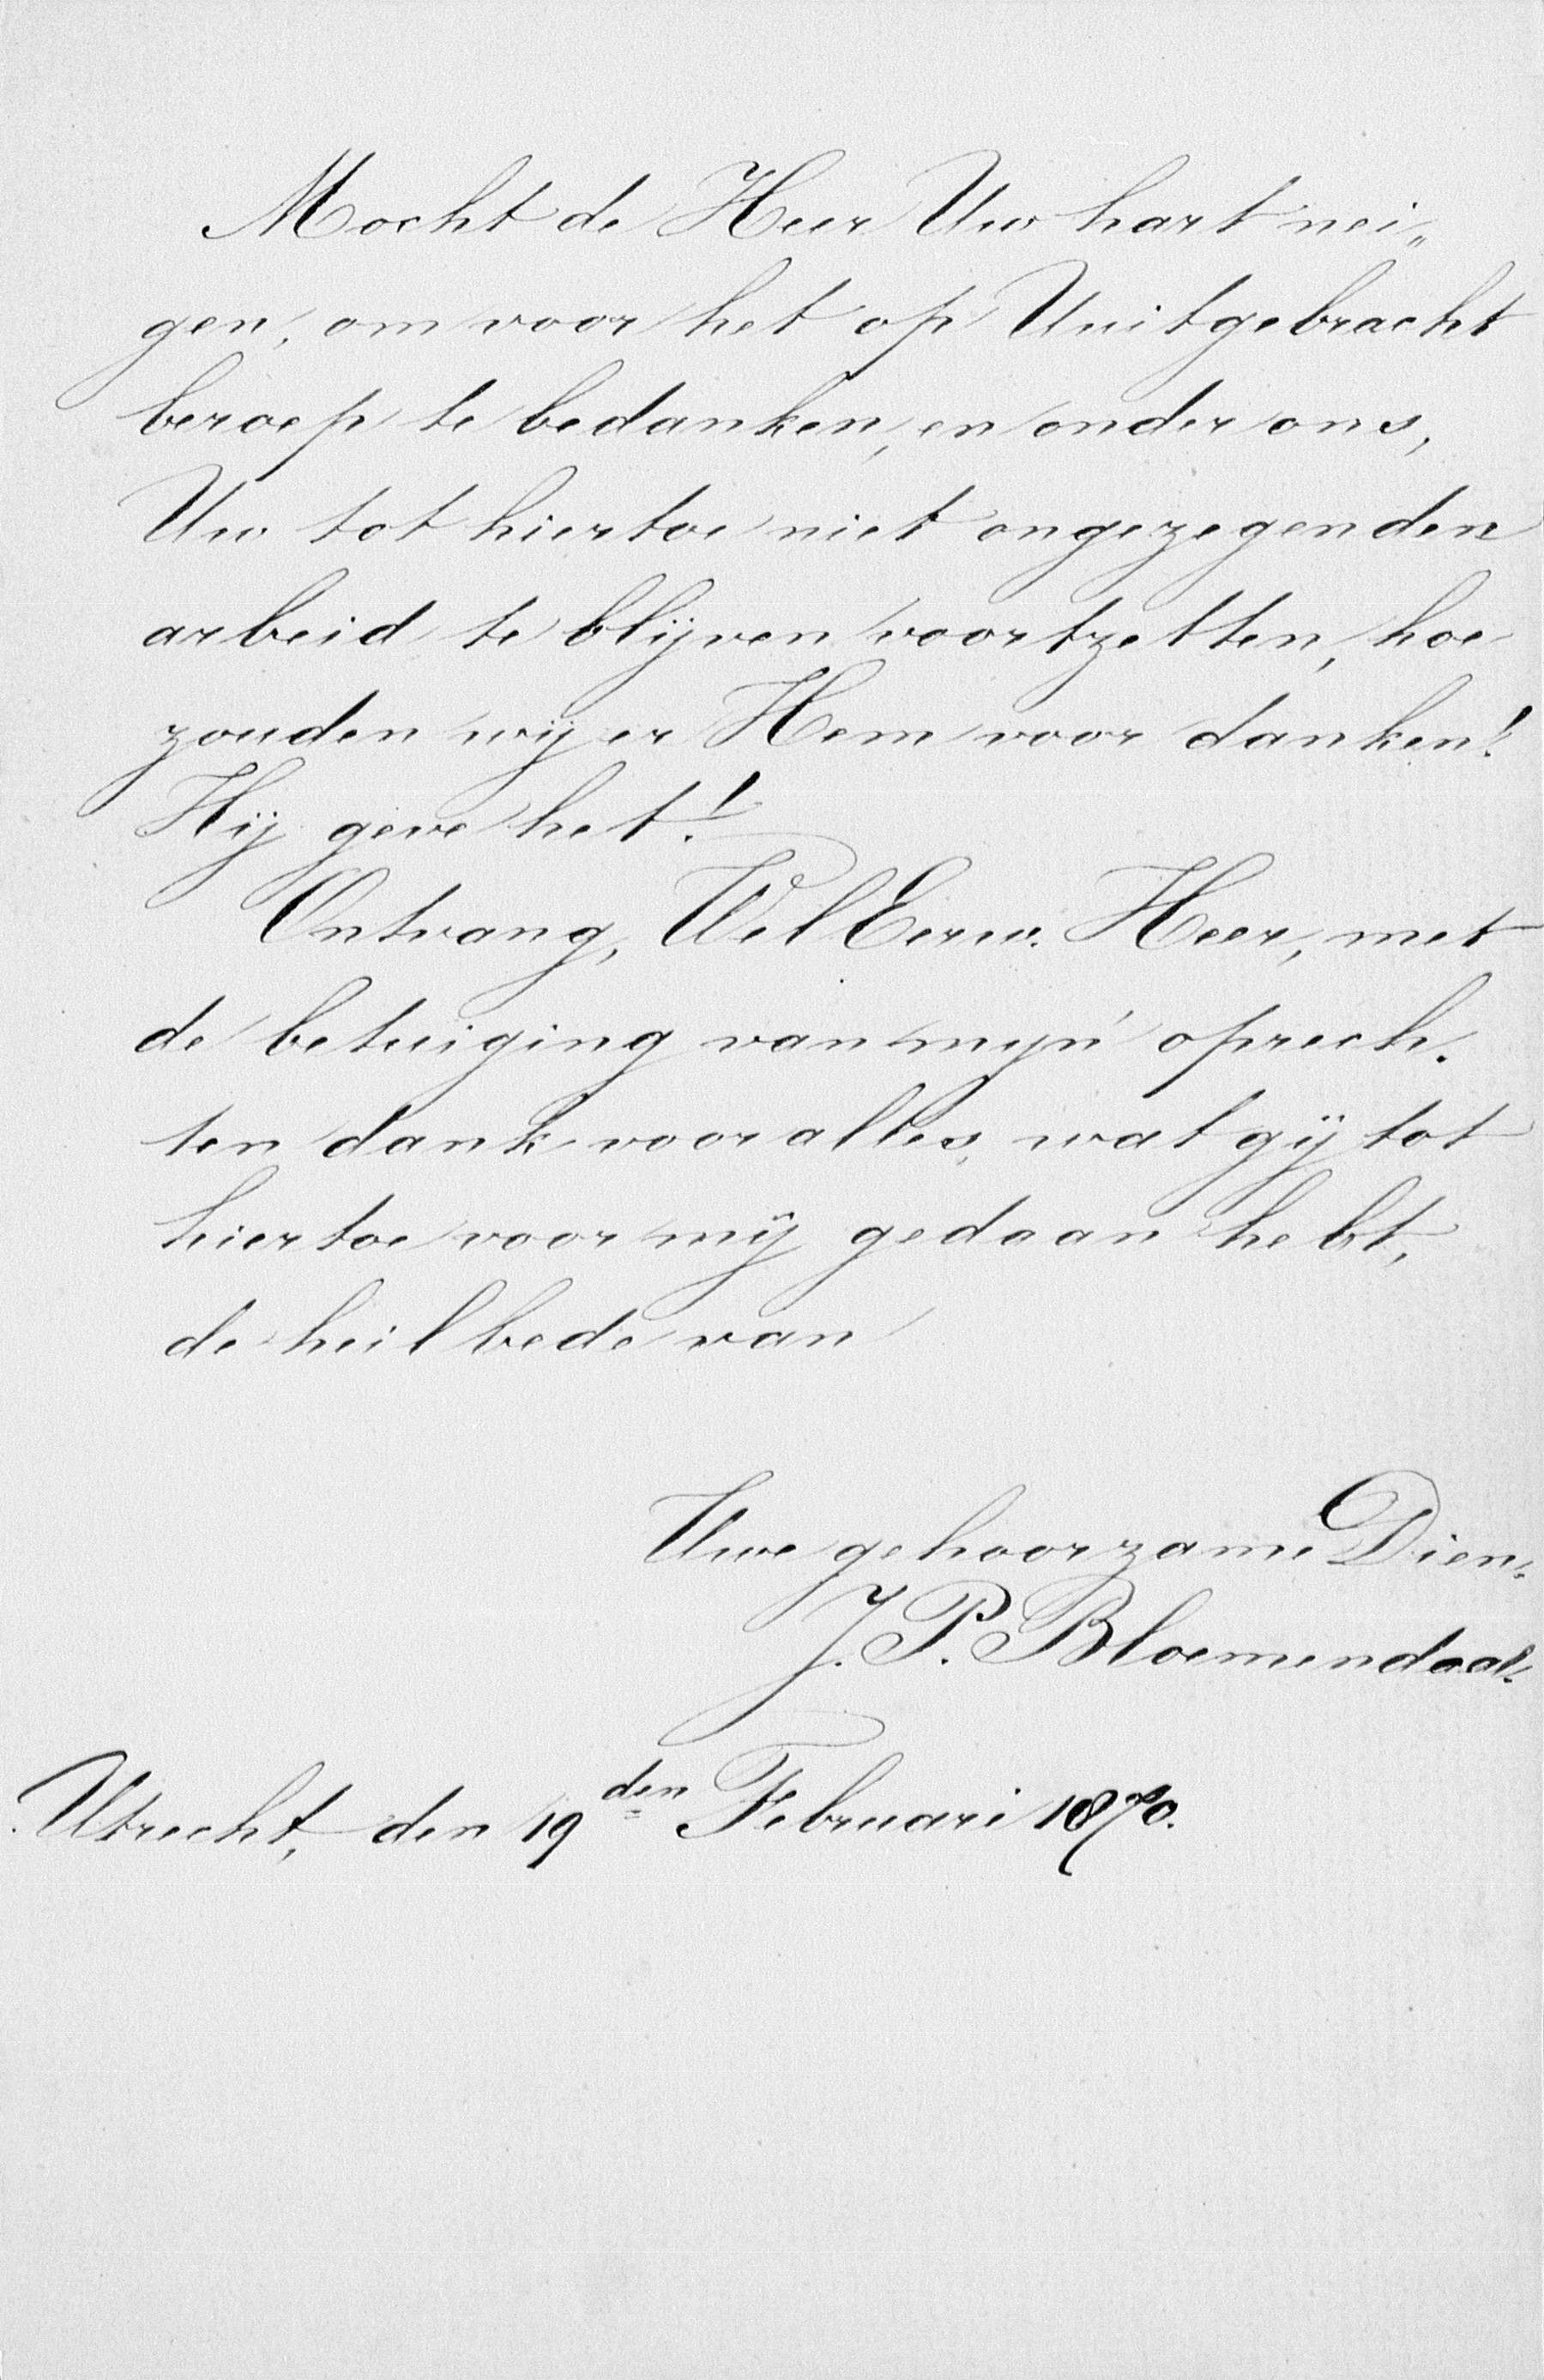 Mocht de Heer Uw hart nei„
gen, om voor het op U uitgebracht
beroep te bedanken, en onder ons,
Uw tot hiertoe niet ongezegenden
arbeid te blijven voortzetten, hoe
zouden wij er Hem voor danken!
Hij geve het!
Ontvang, WelEerw. Heer, met
de betuiging van mijn' oprech.
ten dank voor alles, wat gij tot
hiertoe voor mij gedaan hebt,
de heilbede van
Uwe gehoorzame Dien.
J. P. Bloemendaal.
Utrecht, den 19den Februari 1870.